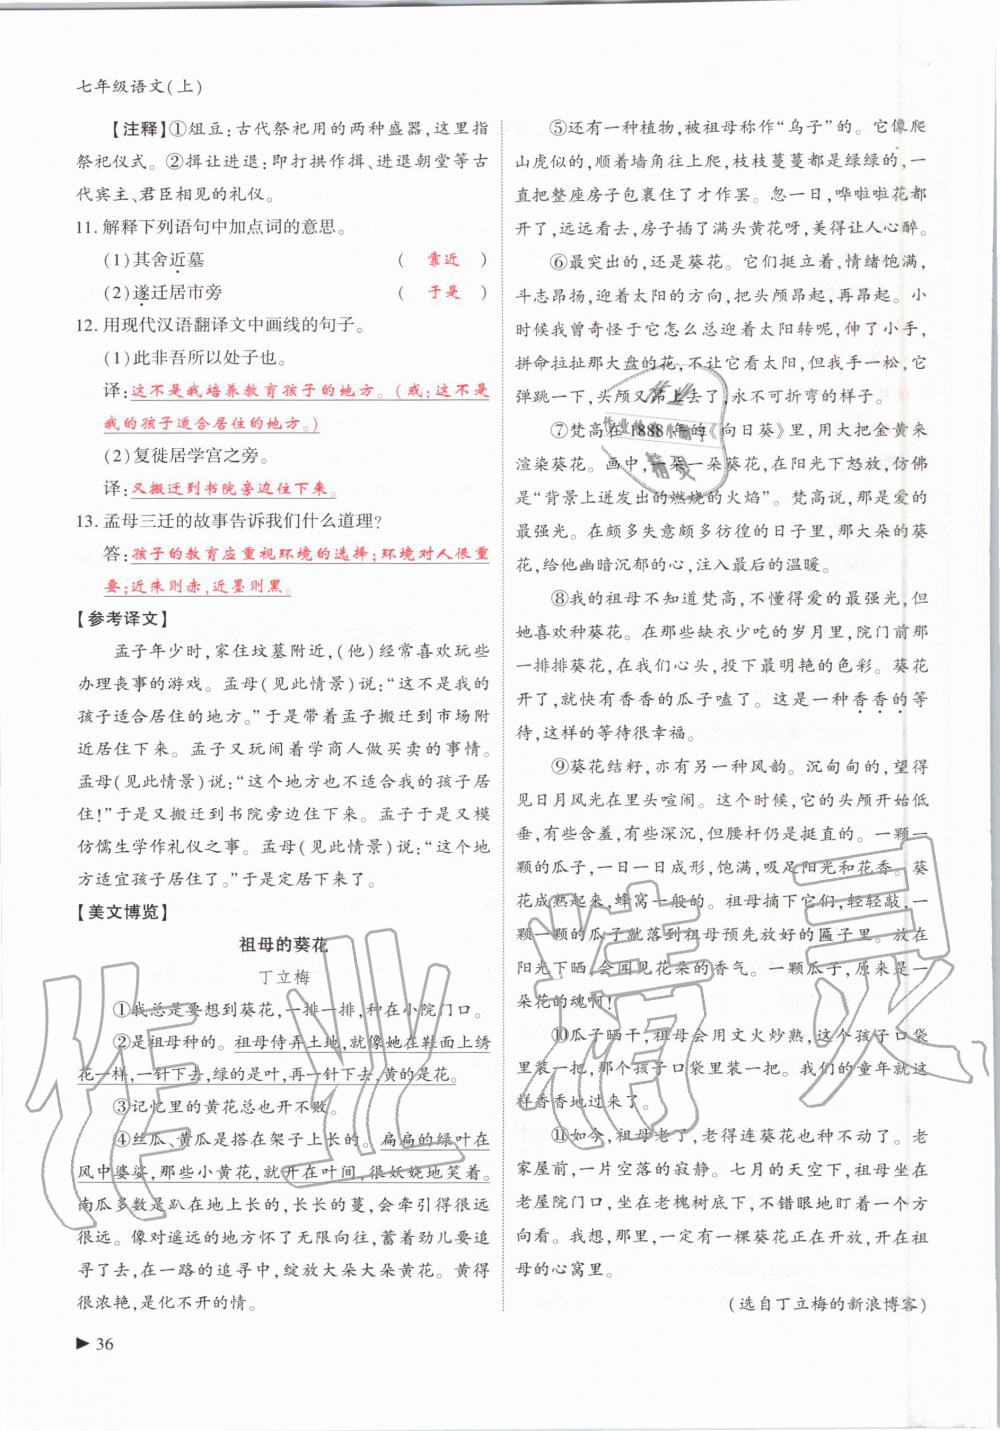 七年级语文(上)
【注释】①俎豆:古代祭祀用的两种盛器,这里指
祭祀仪式。②揖让进退:即打拱作揖、进退朝堂等古
代宾主、君臣相见的礼仪。
11. 解释下列语句中加点词的意思。
(1)其舍近墓 ( 靠近 )
(2)遂迁居市旁 ( 于是 )
12. 用现代汉语翻译文中画线的句子。
(1)此非吾所以处子也。
译:这不是我培养教育孩子的地方。(或:这不是
我的孩子适合居住的地方。)
(2)复徙居学宫之旁。
译:又搬迁到书院旁边住下来。
13. 孟母三迁的故事告诉我们什么道理?
答:孩子的教育应重视环境的选择;环境对人很重
要;近朱则赤,近墨则黑。
【参考译文】
孟子年少时,家住坟墓附近,(他)经常喜欢玩些
办理丧事的游戏。孟母(见此情景)说:“这不是我的
孩子适合居住的地方。”于是带着孟子搬迁到市场附
近居住下来。孟子又玩闹着学商人做买卖的事情。
孟母(见此情景)说:“这个地方也不适合我的孩子居
住!”于是又搬迁到书院旁边住下来。孟子于是又模
仿儒生学作礼仪之事。孟母(见此情景)说:“这个地
方适宜孩子居住了。”于是定居下来了。
【美文博览】
祖母的葵花
丁立梅
①我总是要想到葵花,一排一排,种在小院门口。
②是祖母种的。祖母侍弄土地,就像她在鞋面上绣
花一样,一针下去,绿的是叶,再一针下去,黄的是花。
③记忆里的黄花总也开不败。
④丝瓜、黄瓜是搭在架子上长的。扁扁的绿叶在
风中婆娑,那些小黄花,就开在叶间,很妖娆地笑着。
南瓜多数是趴在地上长的,长长的蔓,会牵引得很远
很远。像对遥远的地方怀了无限向往,蓄着劲儿要追
寻了去,在一路的追寻中,绽放大朵大朵黄花。黄得
很浓艳,是化不开的情。
⑤还有一种植物,被祖母称作“乌子”的。它像爬
山虎似的,顺着墙角往上爬,枝枝蔓蔓都是绿绿的,一
直把整座房子包裹住了才作罢。忽一日,哗啦啦花都
开了,远远看去,房子插了满头黄花呀,美得让人心醉。
⑥最突出的,还是葵花。它们挺立着,情绪饱满,
斗志昂扬,迎着太阳的方向,把头颅昂起,再昂起。小
时候我曾奇怪于它怎么总迎着太阳转呢,伸了小手,
拼命拉扯那大盘的花,不让它看太阳,但我手一松,它
弹跳一下,头颅又昂上去了,永不可折弯的样子。
⑦梵高在1888年的《向日葵》里,用大把金黄来
渲染葵花。画中,一朵一朵葵花,在阳光下怒放,仿佛
是“背景上迸发出的燃烧的火焰”。梵高说,那是爱的
最强光。在颇多失意颇多彷徨的日子里,那大朵的葵
花,给他幽暗沉郁的心,注入最后的温暖。
⑧我的祖母不知道梵高,不懂得爱的最强光,但
她喜欢种葵花。在那些缺衣少吃的岁月里,院门前那
一排排葵花,在我们心头,投下最明艳的色彩。葵花
开了,就快有香香的瓜子嗑了。这是一种香香的等
待,这样的等待很幸福。
⑨葵花结籽,亦有另一种风韵。沉甸甸的,望得
见日月风光在里头喧闹。这个时候,它的头颅开始低
垂,有些含羞,有些深沉,但腰杆仍是挺直的。一颗一
颗的瓜子,一日一日成形,饱满,吸足阳光和花香。葵
花成熟起来,蜂窝一般的。祖母摘下它们,轻轻敲,一
颗一颗的瓜子就落到祖母预先放好的匾子里。放在
阳光下晒,会闻见花朵的香气。一颗瓜子,原来是一
朵花的魂啊!
⑩瓜子晒干,祖母会用文火炒熟,这个孩子口袋
里装一把,那个孩子口袋里装一把。我们的童年就这
样香香地过来了。
⑪如今,祖母老了,老得连葵花也种不动了。老
家屋前,一片空落的寂静。七月的天空下,祖母坐在
老屋院门口,坐在老槐树底下,不错眼地盯着一个方
向看。我想,那里,一定有一棵葵花正在开放,开在祖
母的心窝里。
(选自丁立梅的新浪博客)
▶ 36
作业精灵